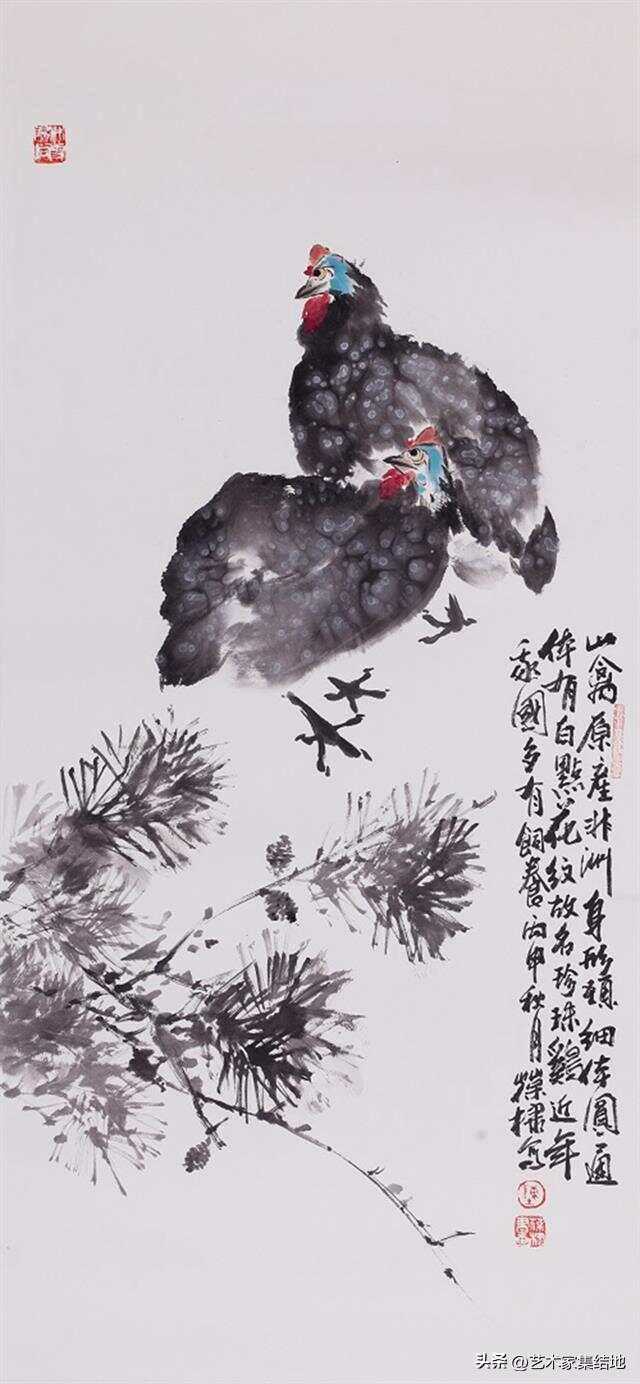 山禽原產非洲身形頸細体圓通
体有白點花紋故名珍珠鷄近年
我國多有飼養丙申秋月葆棣寫
头条 @艺术家集结地